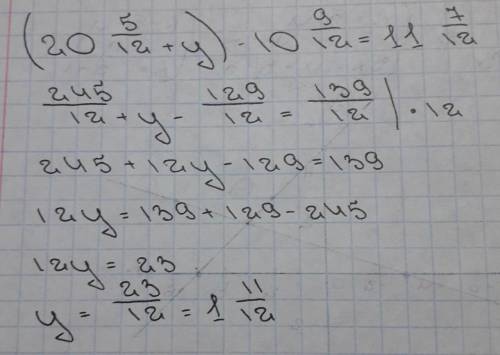 (20 5/12 + y) - 10 9/12 = 11 7/12
245/12 + y - 129/12 = 139/12 | · 12
245 + 12y - 129 = 139
12y = 139 + 129 - 245
12y = 23
y = 23/12 = 1 11/12